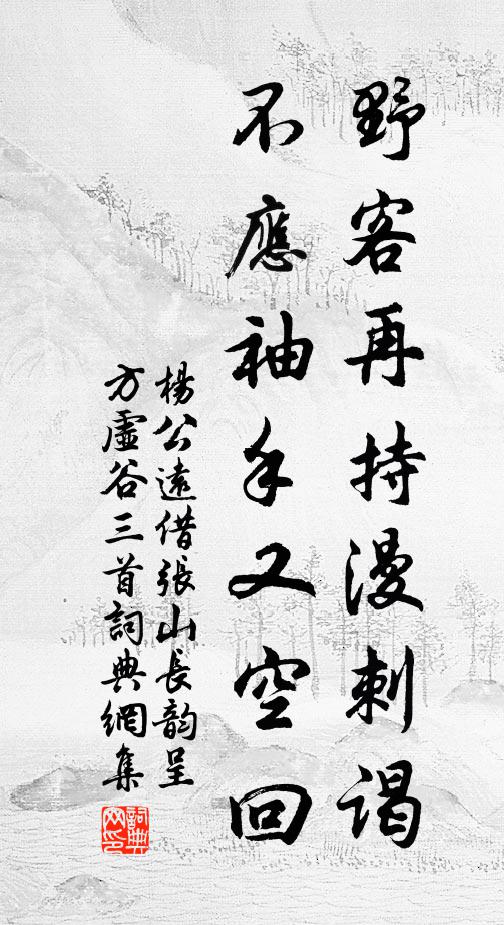 野客再持漫刺谒
不應袖手又空回
楊公遠借張山長韵呈
方虛谷三首詞典網集
詞典网印